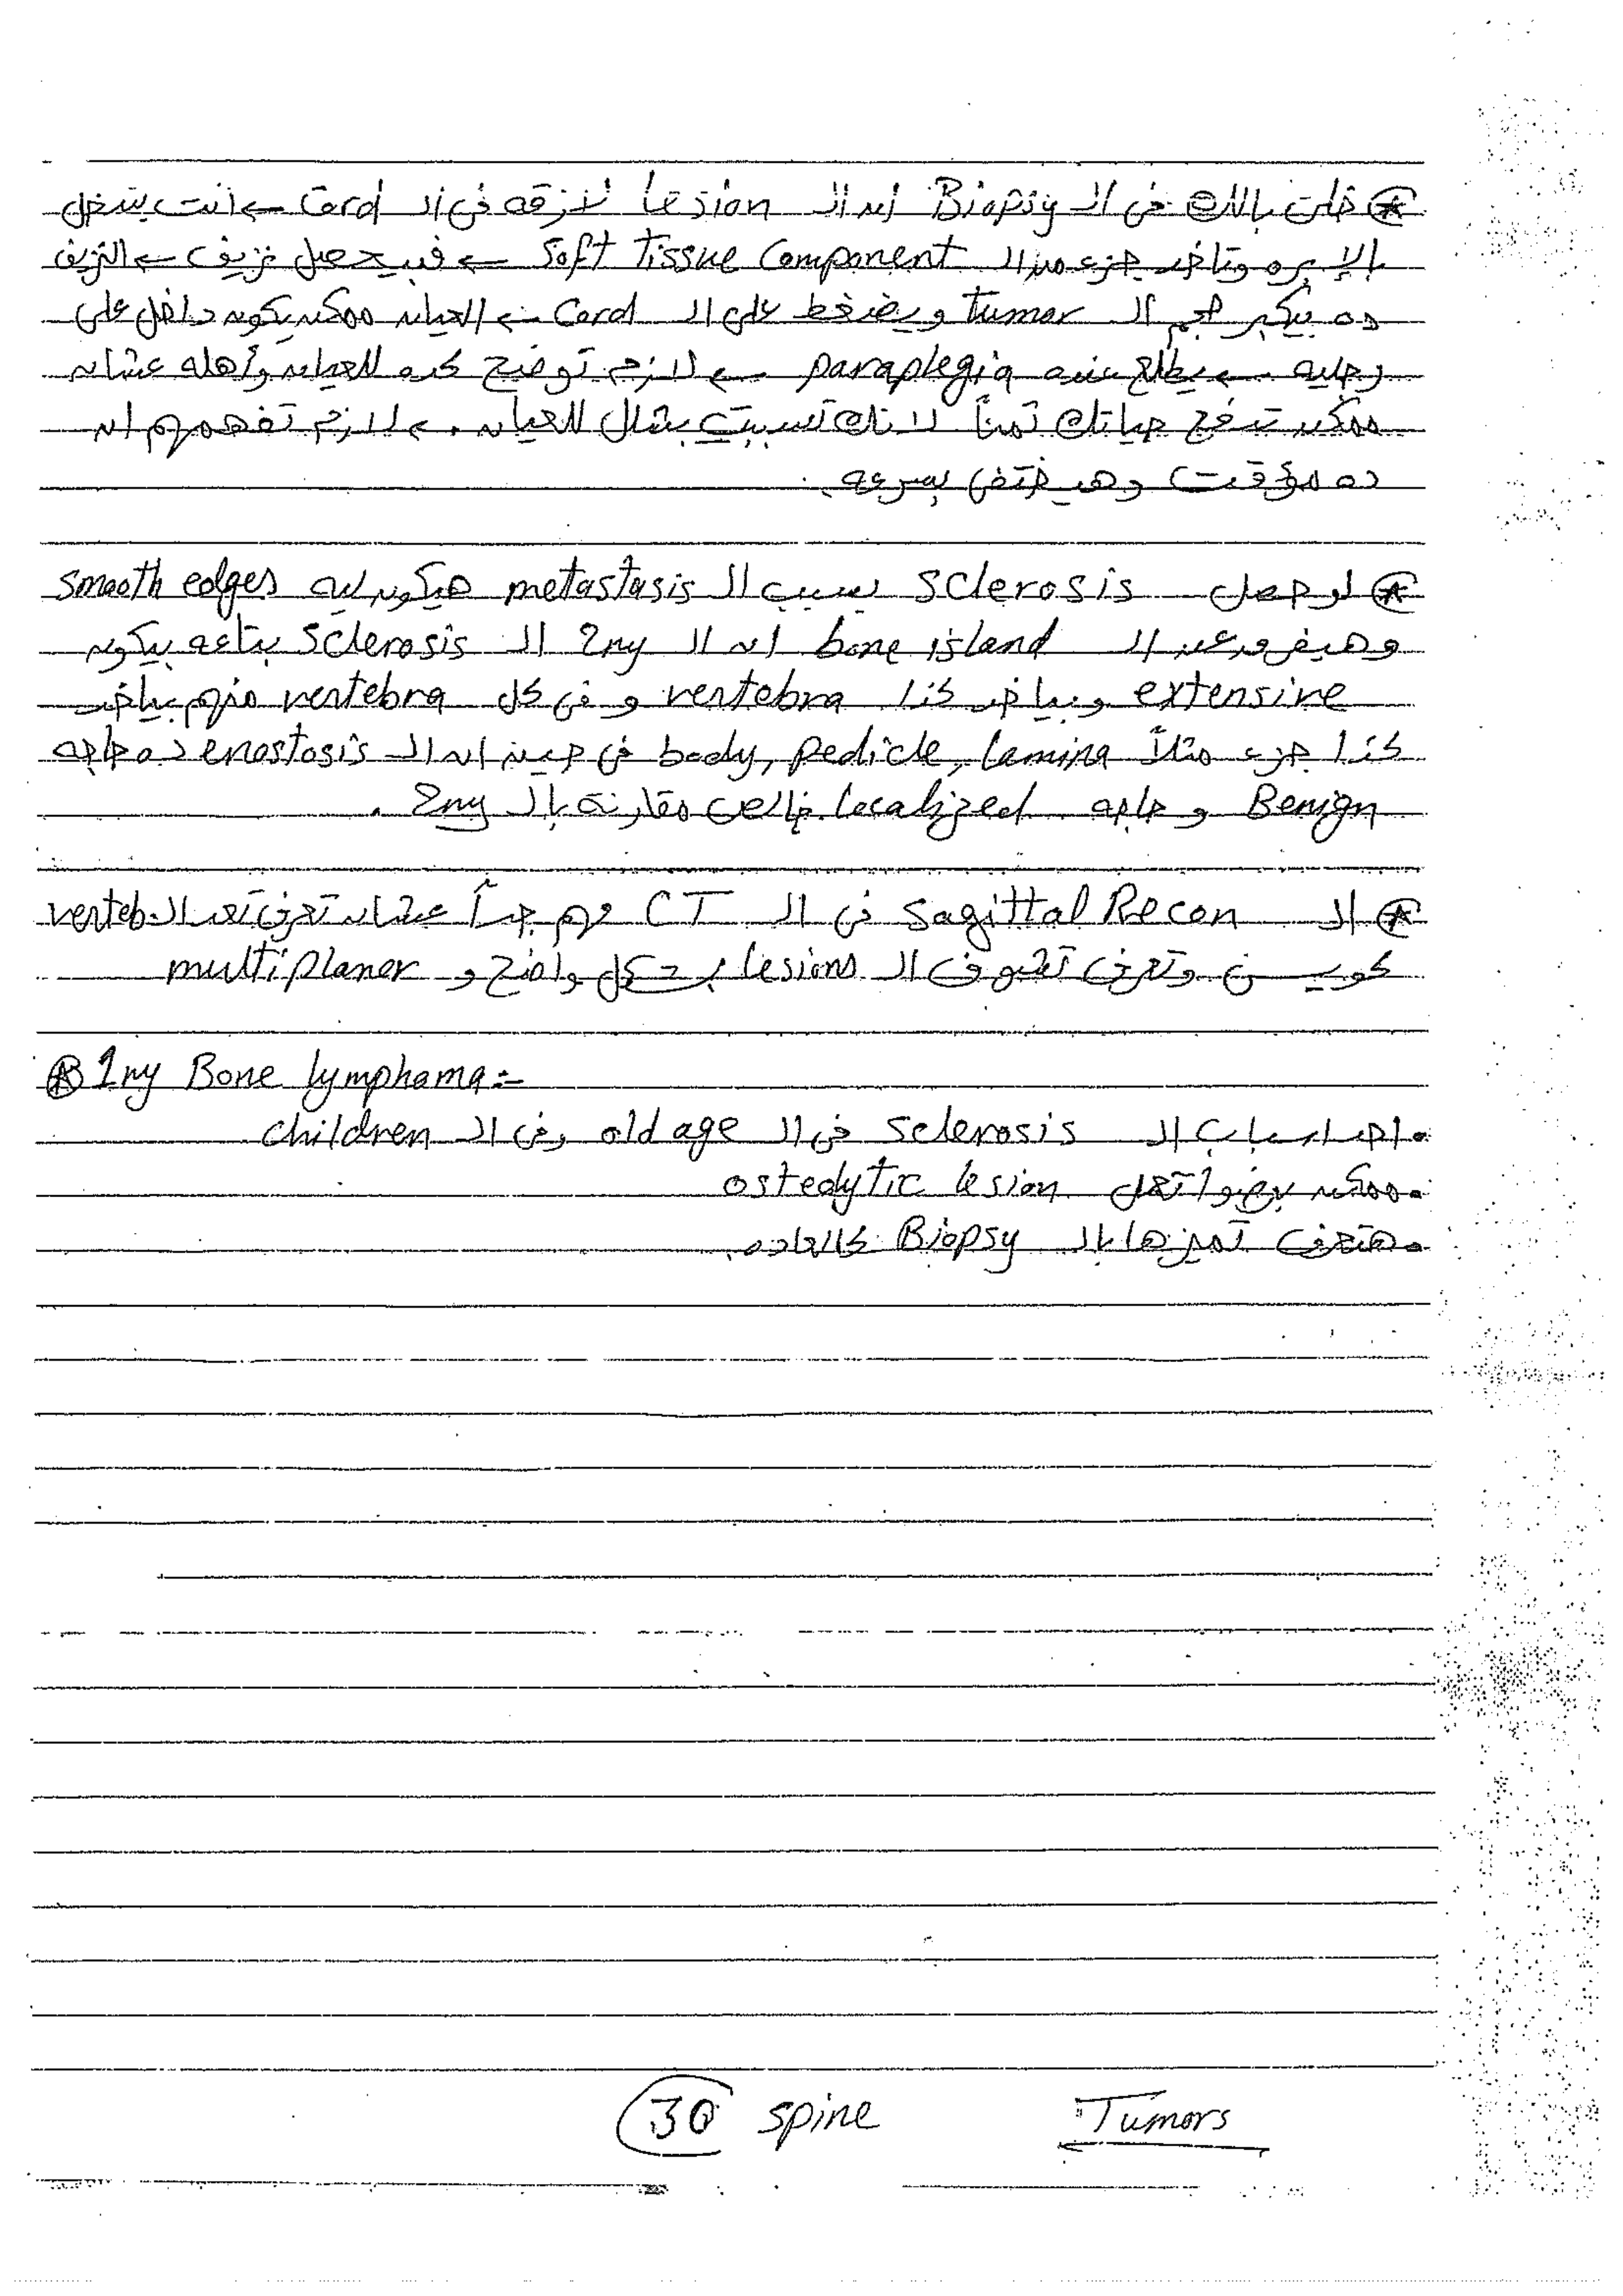 ⊛ خلى بالك فى ال Biopsy ان ال Lesion لازقه فى ال Cord ← انت بتدخل
الإبره وتاخد جزء من ال Soft Tissue Component ← فبيحصل نزيف ← النزيف
ده بيكبر حجم ال tumor ويضغط على ال Cord ← العيان ممكن يكون داخل على
رجليه ← يطلع عنده paraplegia ← لازم توضح كده للعيان وأهله عشان
ممكن تدفع حياتك تمناً لانك تسببت بشلل للعيان. ← لازم تفهمهم ان
ده مؤقت وهيختفى بسرعه.
⊛ لو حصل Sclerosis بسبب ال metastasis هيكون ليه smooth edges
وهيفرق عن ال bone island ان ال 2ny ال Sclerosis بتاعه بيكون
extensive وبياخد كذا vertebra وفى كل vertebra منهم بياخد
كذا جزء مثلاً body, pedicle, lamina فى حين ان ال enostosis ده حاجه
Benign وحاجه localized خالص مقارنة بال 2ny.
⊛ ال Sagittal Recon فى ال CT مهم جداً عشان تعرف تعد ال verteb.
كويس وتعرف تشوف ال lesions بشكل واضح و multiplaner
⊛ 1ry Bone lymphoma:-
• احد اسباب ال Sclerosis فى ال old age وفى ال children
• ممكن برضو تعمل osteolytic lesion
• هتعرف تميزها بال Biopsy كالعاده.
30 spine Tumors